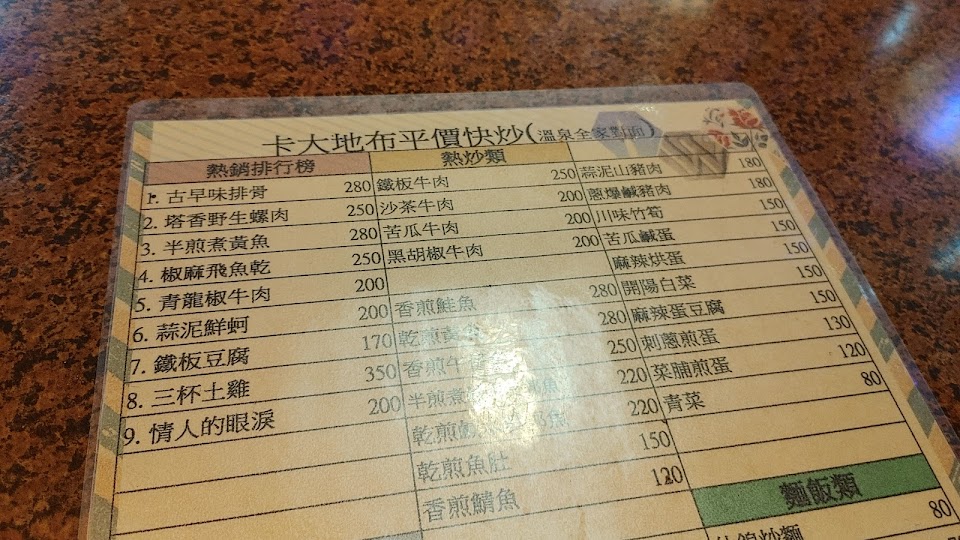 卡大地布平價快炒(溫泉全家對面)
熱銷排行榜
1. 古早味排骨 280
2. 塔香野生螺肉 250
3. 半煎煮黃魚 280
4. 椒麻飛魚乾 250
5. 青龍椒牛肉 200
6. 蒜泥鮮蚵 200
7. 鐵板豆腐 170
8. 三杯土雞 350
9. 情人的眼淚 200
熱炒類
鐵板牛肉 250
沙茶牛肉 200
苦瓜牛肉 200
黑胡椒牛肉 200
香煎鮭魚 280
乾煎 280
香煎牛 250
半煎煮 220
乾煎 220
乾煎魚肚 150
香煎鯖魚 120
蒜泥山豬肉 180
蔥爆鹹豬肉 180
川味竹筍 150
苦瓜鹹蛋 150
麻辣烘蛋 150
開陽白菜 150
麻辣蛋豆腐 150
刺蔥煎蛋 130
菜脯煎蛋 120
青菜 80
麵飯類
80